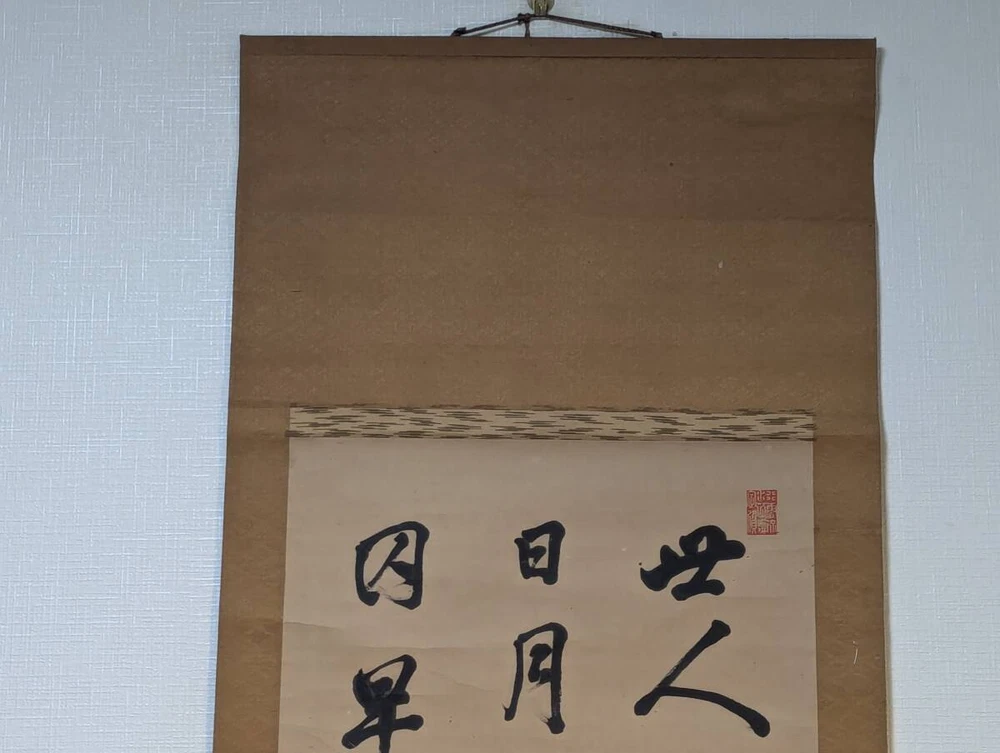 世人
日月
囚早